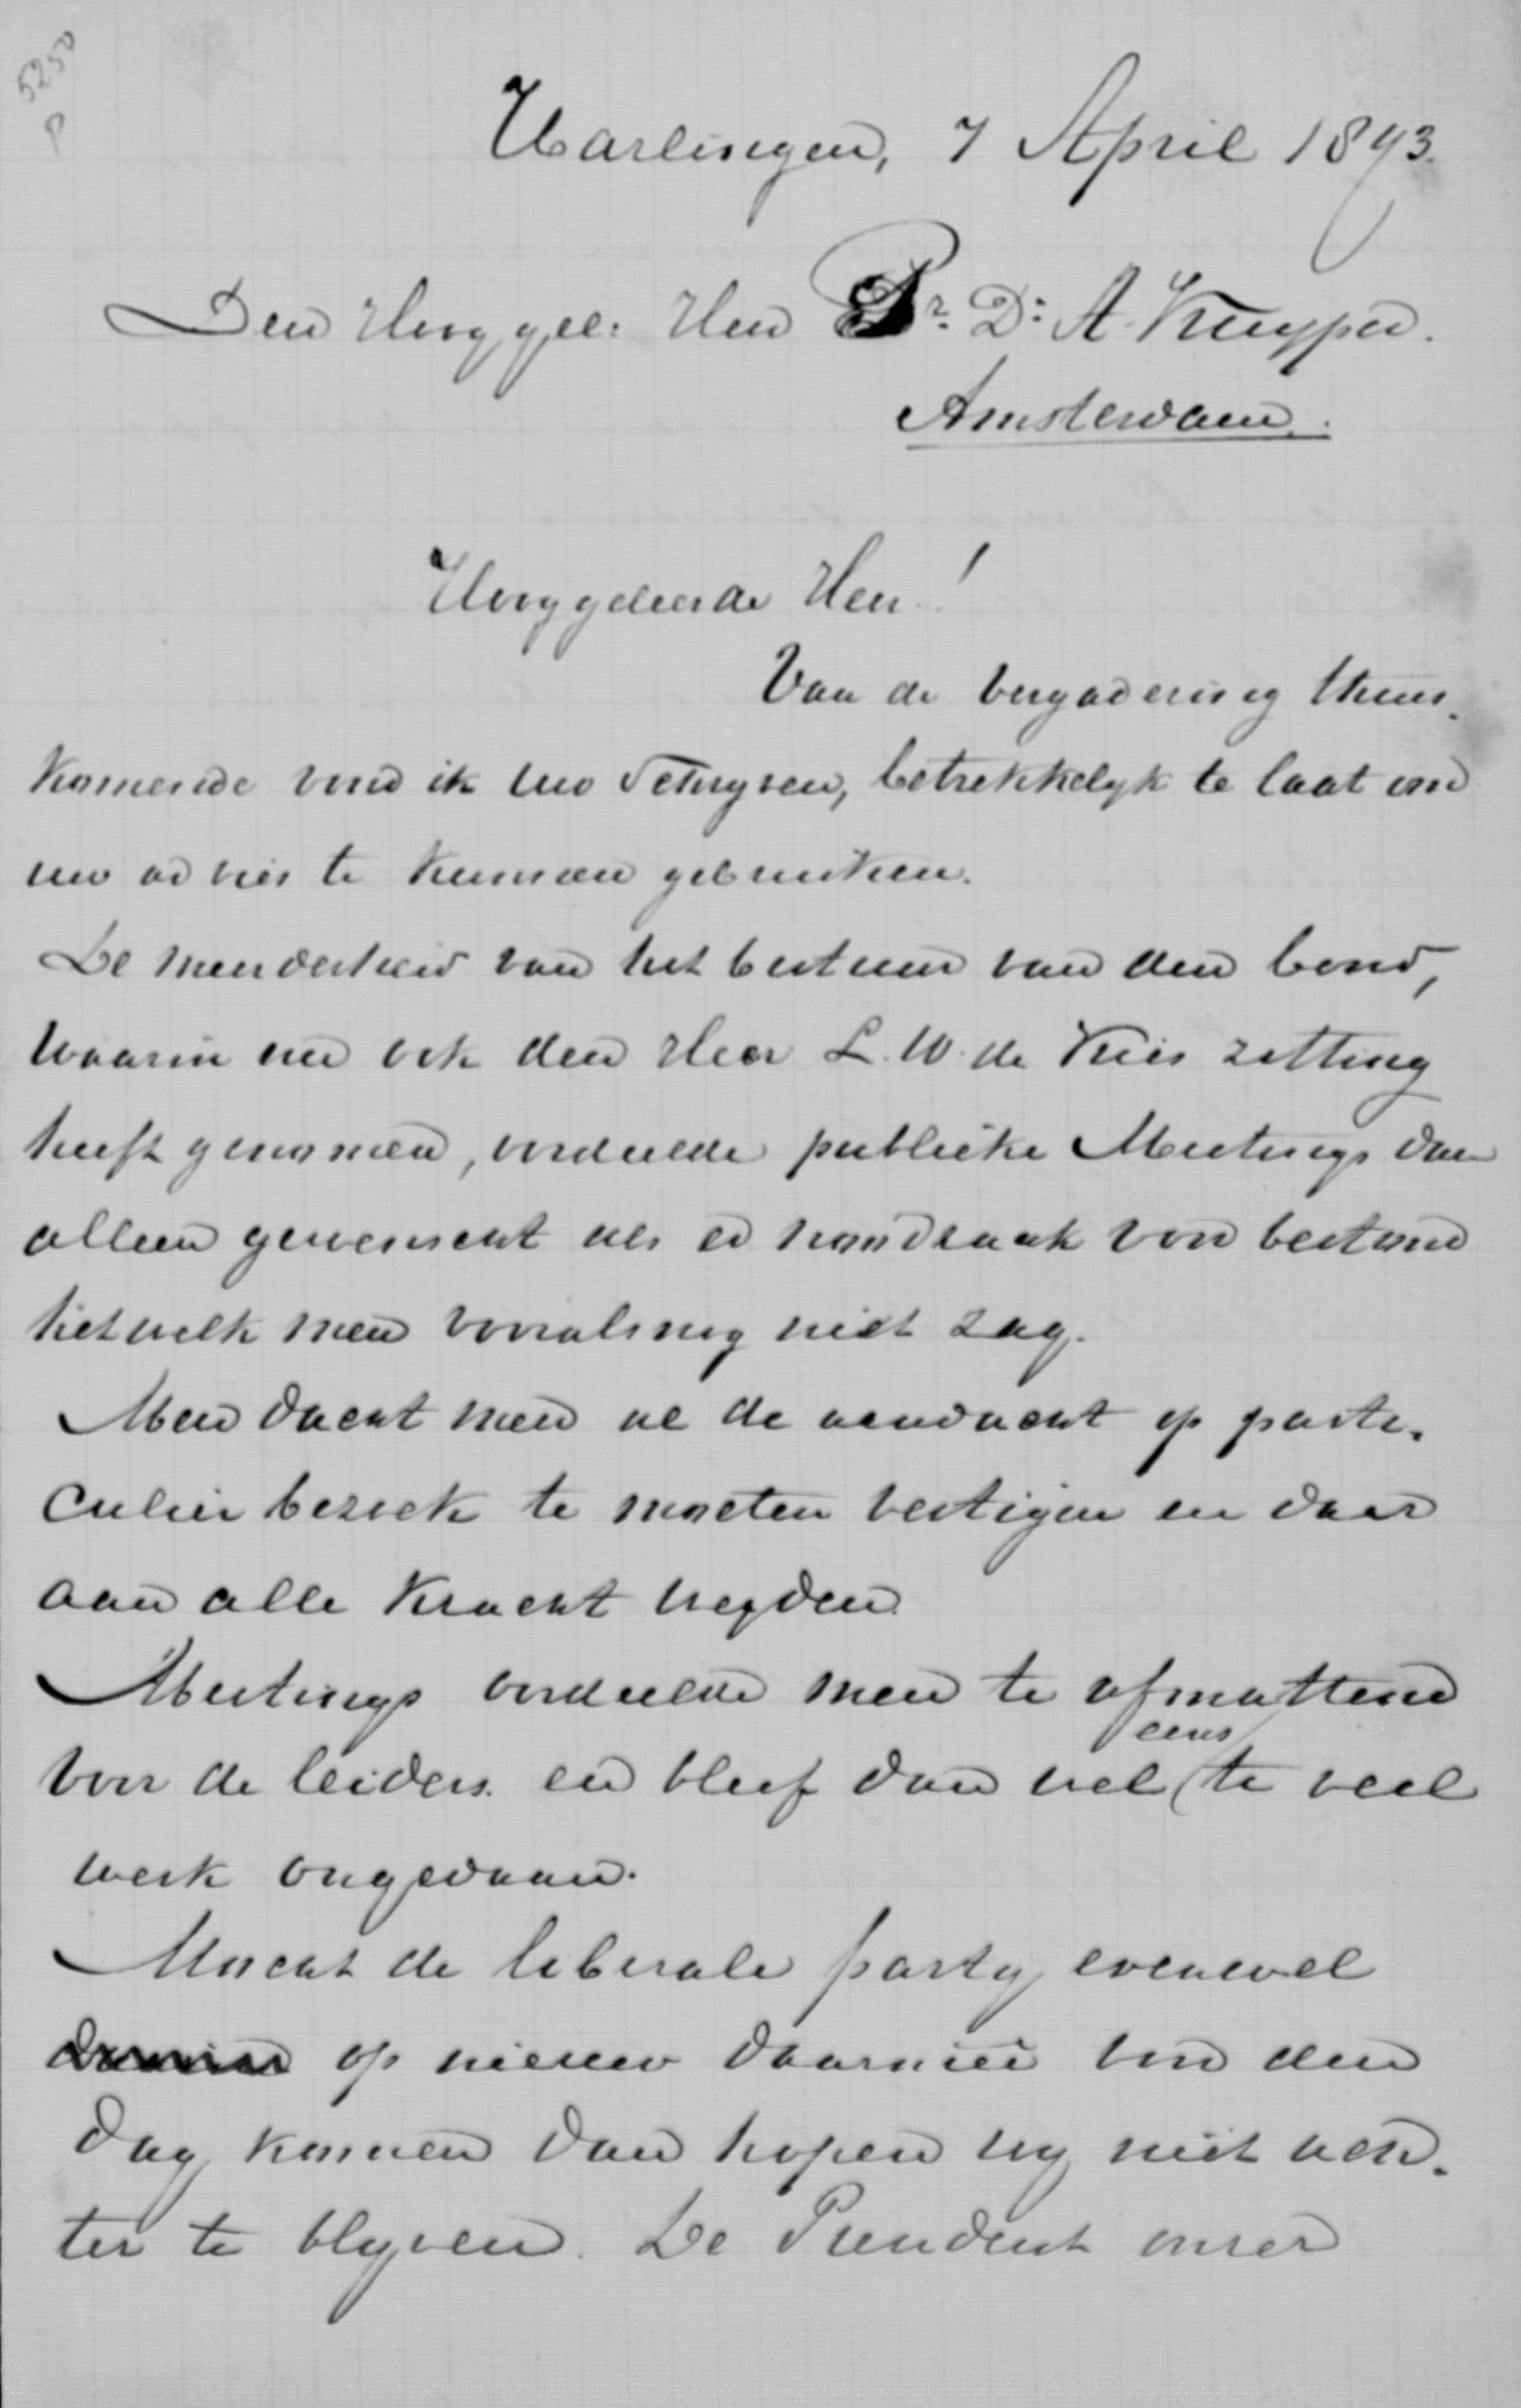 5250
P
Harlingen, 7 April 1893.
Den Hooggel: Heer Pr. Dr. A. Kuyper.
Amsterdam.
Hooggeleerde Heer!
Van de vergadering thuis
komende vind ik uw schrijven, betrekkelyk te laat om
uw advies te kunnen gebruiken.
De meerderheid van het bestuur van den bond,
waarin nu ook den Heer L. W. de Vries zitting
heeft genomen, oordeelde publieke Meetings dan
alleen gewenscht als er noodzaak voor bestond
hetwelk men vooralsnog niet zag.
Meer dacht men al de aandacht op parti-
culier bezoek te moeten vestigen en daar
aan alle kracht wyden.
Meetings oordeelde men te afmattend
eens
voor de leiders en bleef dan wel te veel
werk ongedaan.
Mocht de liberale party evenwel
op nieuw daarmee voor den
dag komen dan hopen wy niet ach-
ter te blyven. De President onzer